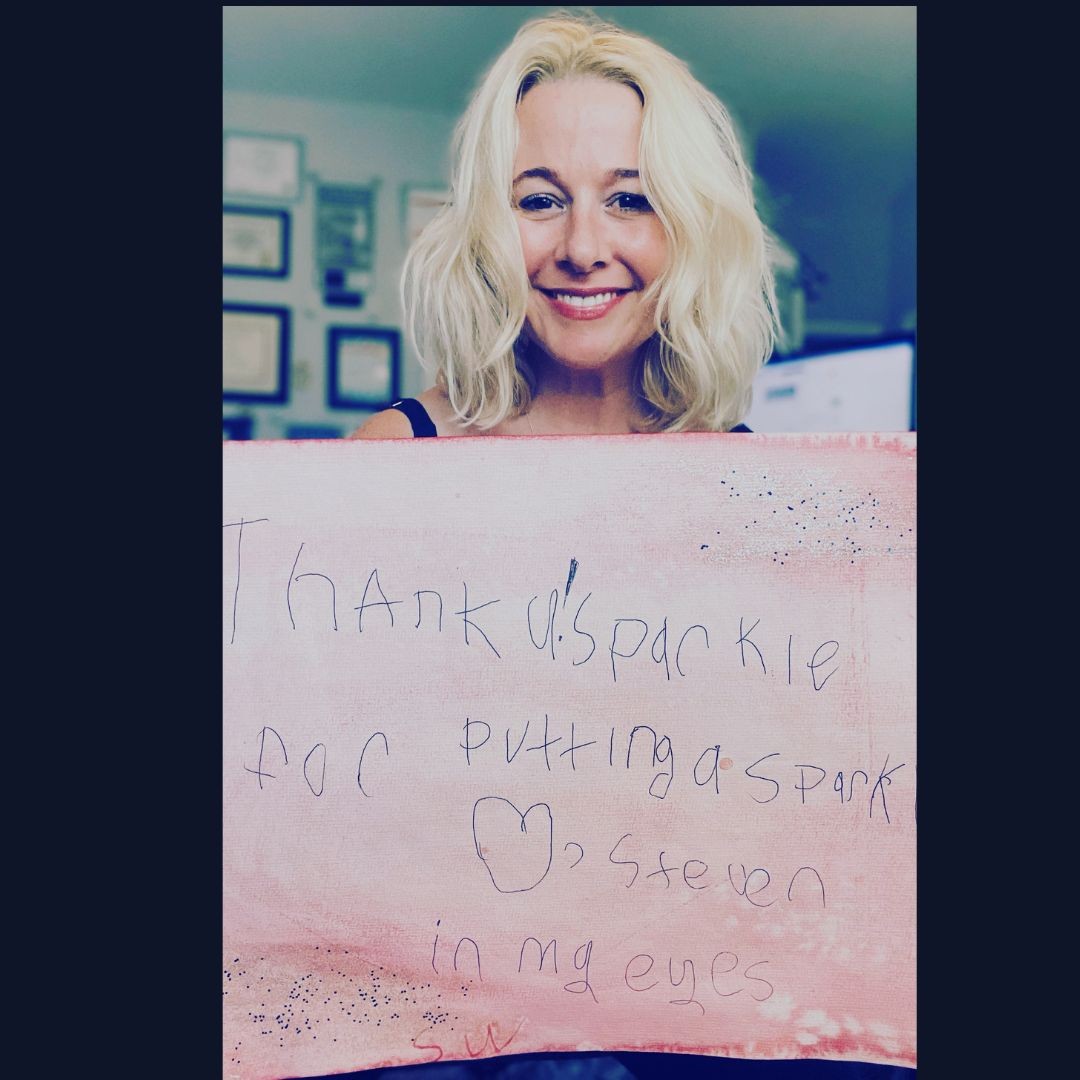 Thank u! Sparkle
for putting a spark
♡, Steven
in my eyes
SW